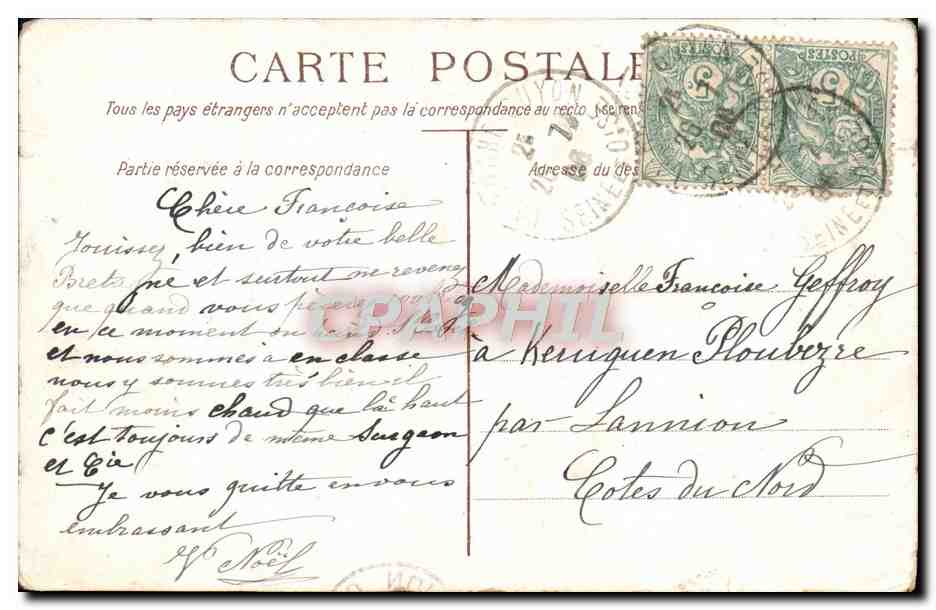 CARTE POSTALE
Tous les pays étrangers n'acceptent pas la correspondance au recto (se ren
Partie réservée à la correspondance
Adresse du des
Chère Françoise
Jouissez, bien de votre belle
Bretagne et surtout ne revenez
que quand vous
en ce moment on
et nous sommes à en classe
nous y sommes très bien il
fait moins chaud que là haut
c'est toujours de même Surgeon
et Cie
Je vous quitte en vous
embrassant
V Noël
Mademoiselle Françoise Geffroy
à Keruguen Ploubezre
par Lannion
Cotes du Nord
POSTES
5
POSTES
5
CPAPHIL
SEINE ET OISE